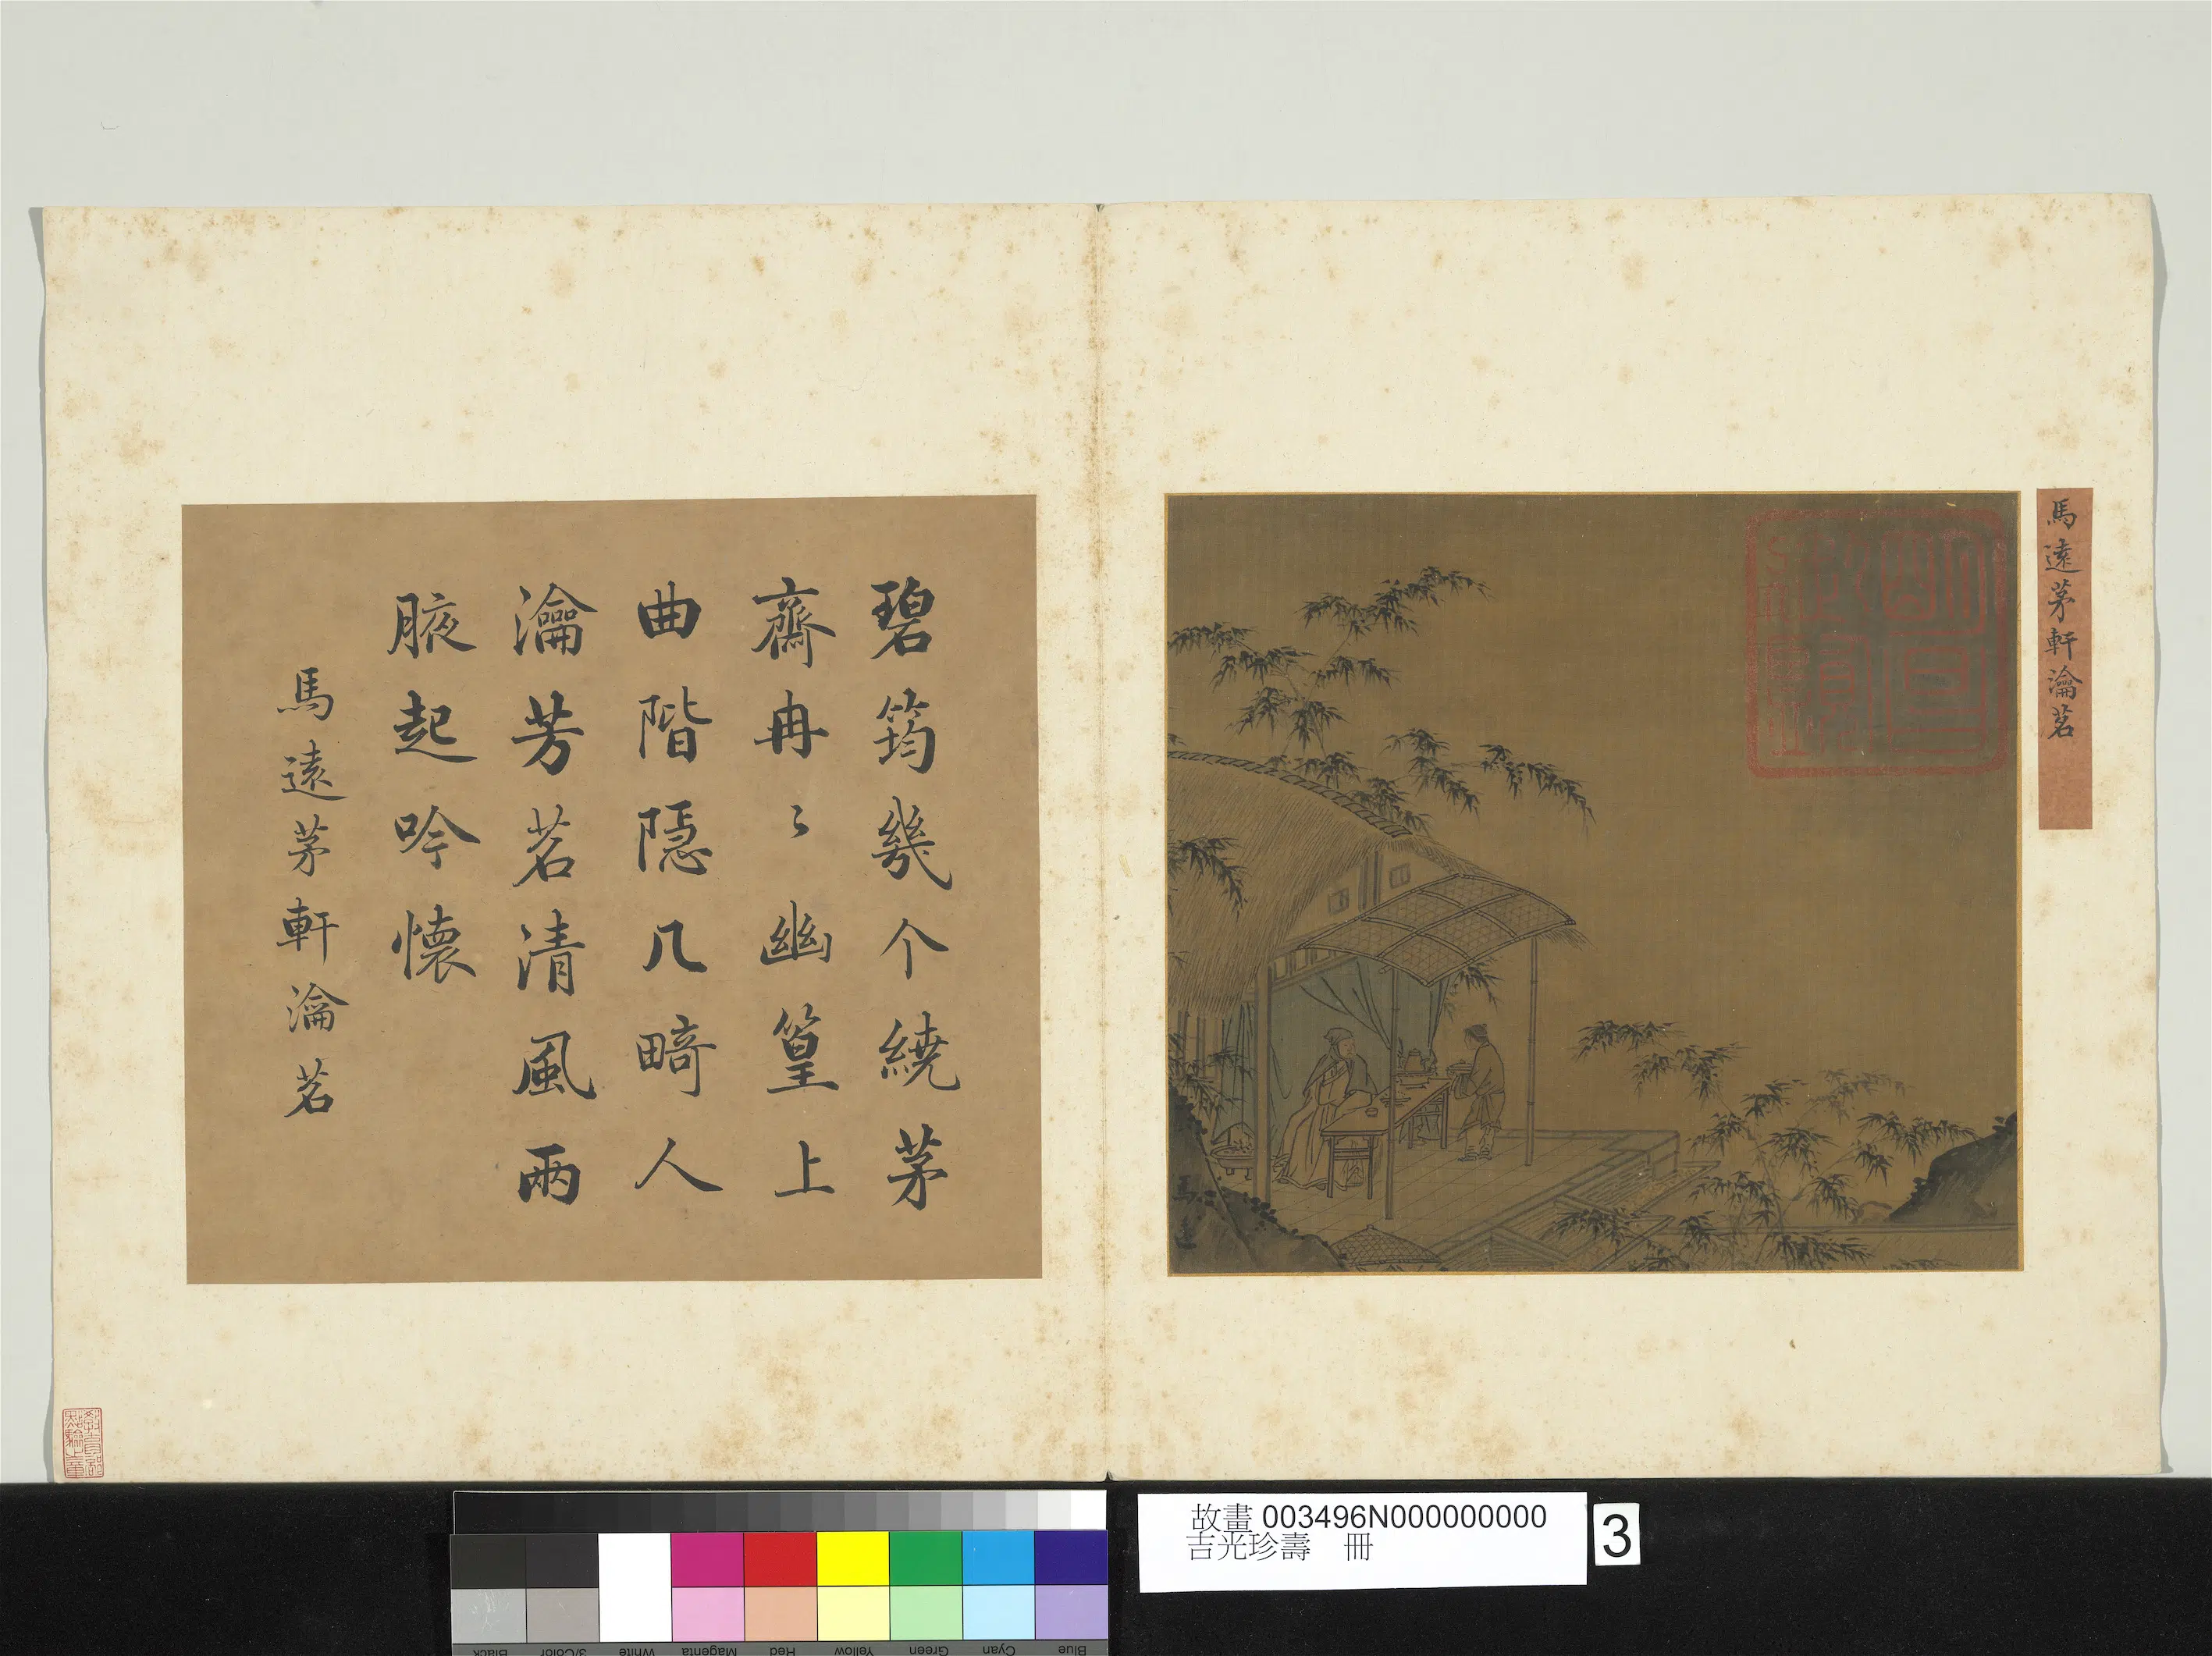 馬遠茅軒瀹茗
碧筠幾个繞茅
齋冉〻幽篁上
曲階隱几畸人
瀹芳茗清風兩
腋起吟懷
馬遠茅軒瀹茗
馬遠
教育部
點驗之章
故畫 003496N000000000
吉光珍壽 冊
3
Black
3/Color
White
Magenta
Red
Yellow
Green
Cyan
Blue